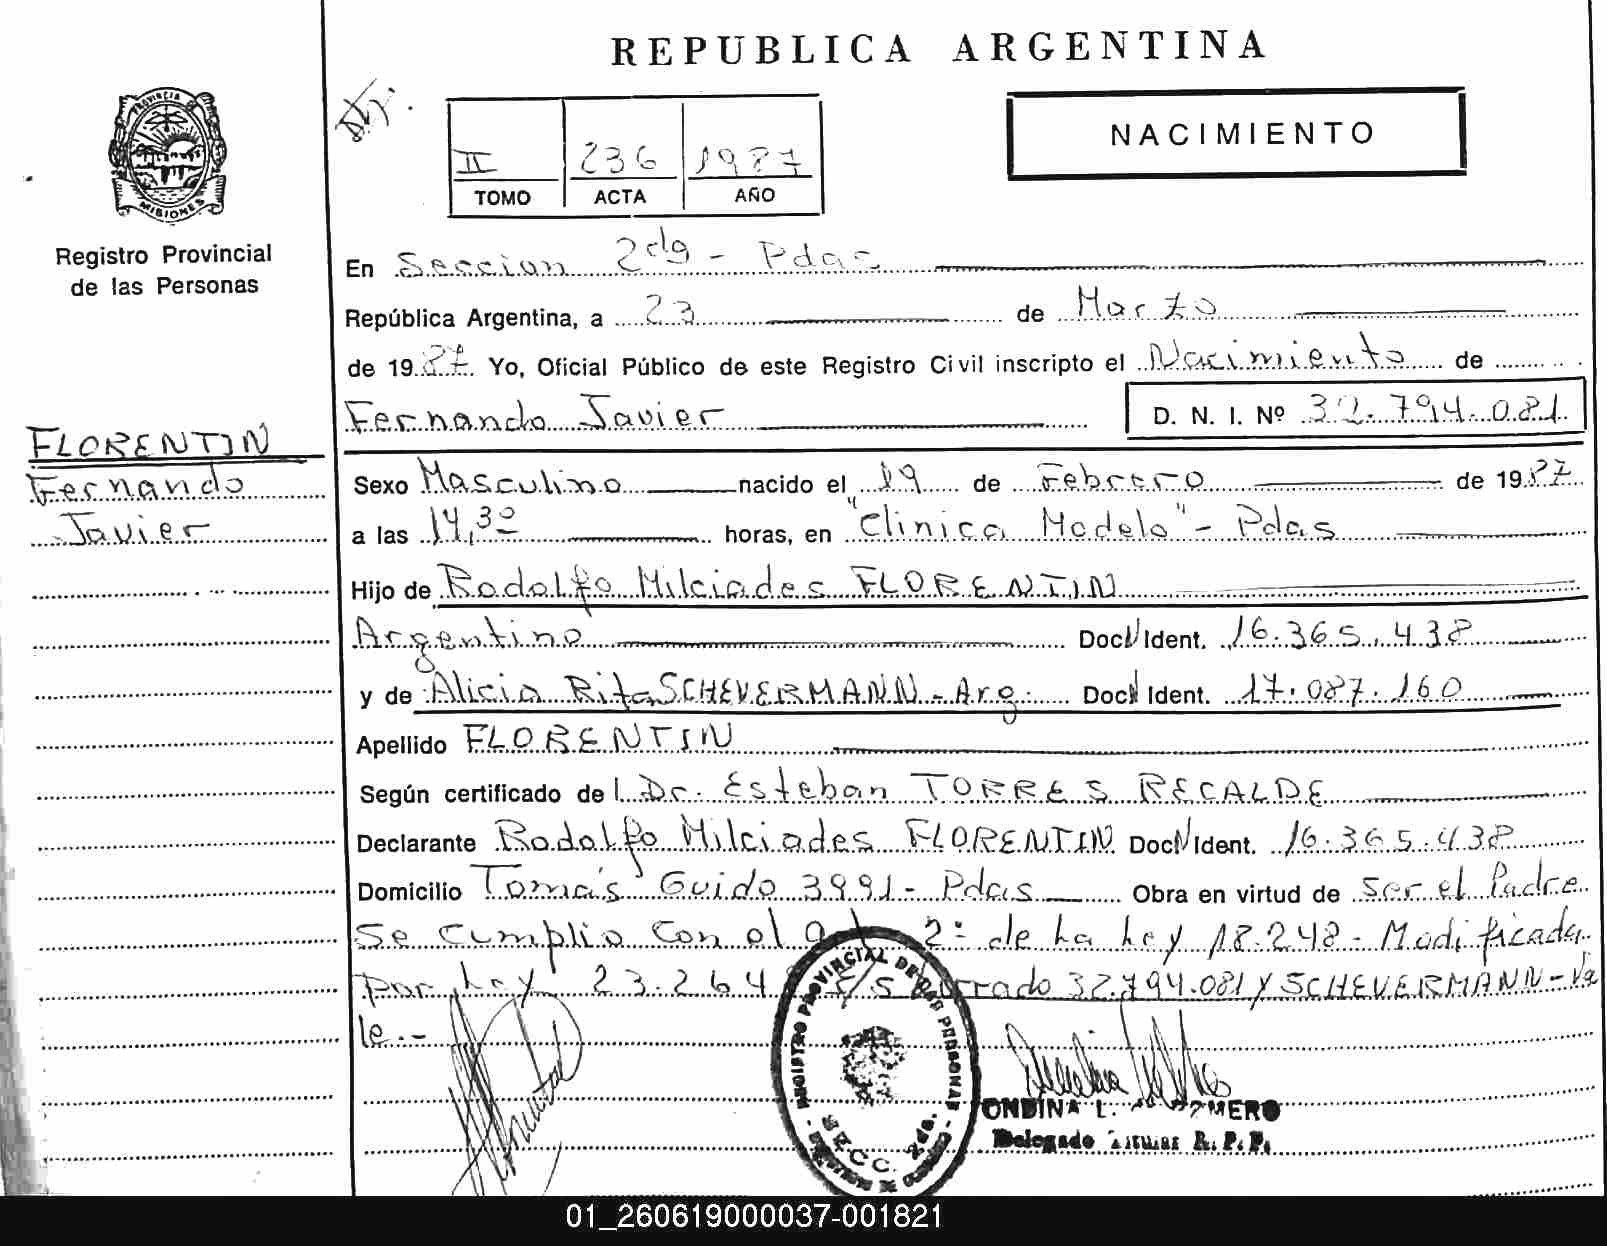 REPUBLICA ARGENTINA
PROVINCIA
MISIONES
Registro Provincial
de las Personas
II 236 1987
TOMO ACTA AÑO
NACIMIENTO
En Seccion 2da - Pdas
República Argentina, a 23 de Marzo
de 1987. Yo, Oficial Público de este Registro Civil inscripto el Nacimiento de
Fernando Javier D. N. I. Nº 32.794.081
FLORENTIN
Fernando
Javier
Sexo Masculino nacido el 19 de Febrero de 1987
a las 14,30 horas, en "Clinica Modelo" - Pdas
Hijo de Rodolfo Milciades FLORENTIN
Argentino Doc. N Ident. 16.365.438
y de Alicia Rita SCHEVERMANN - Arg. Doc. N Ident. 17.087.160
Apellido FLORENTIN
Según certificado de l Dr. Esteban TORRES RECALDE
Declarante Rodolfo Milciades FLORENTIN Doc. N Ident. 16.365.438
Domicilio Tomás Guido 3991 - Pdas Obra en virtud de Ser el Padre
Se cumplio con el 2º de La Ley 18.248 - Modificada
por Ley 23.264 E/S 32.794.081 y SCHEVERMANN - Va
le.-
REGISTRO PROVINCIAL DE LAS PERSONAS
SECC. 2da.
ONDINA L. ROMERO
Delegado Titular R. P. P.
01_260619000037-001821